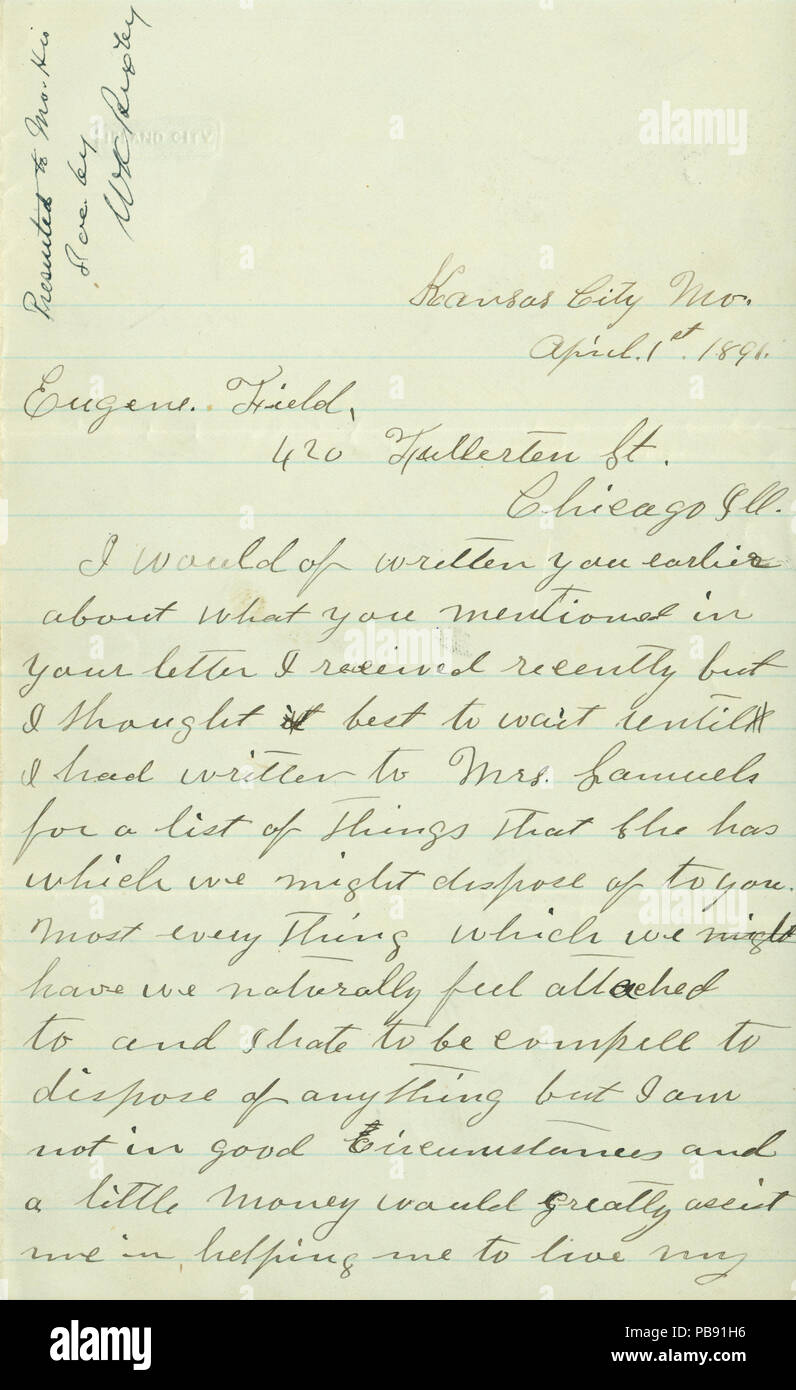 Presented to Mo. His
Soc. by
WK Bixby
Kansas City Mo.
April. 1st. 1891.
Eugene. Field,
420 Fullerten St.
Chicago Ill.
I would of written you earlier
about what you mentioned in
your letter I received recently but
I thought it best to wait until
I had written to Mrs. Samuels
for a list of things that she has
which we might dispose of to you.
Most every thing which we might
have we naturally feel attached
to and I hate to be compell to
dispose of anything but I am
not in good Circumstances and
a little money would greatly assist
me in helping me to live my
alamy
alamy stock photo
PB91H6
www.alamy.com